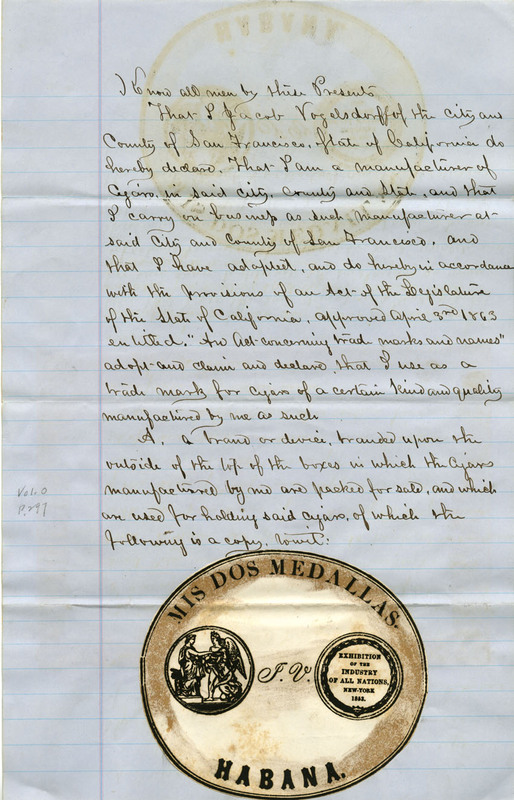 Know all men by these Presents
That I Jacob Vogelsdorff of the City and
County of San Francisco, State of California do
hereby declare, That I am a manufacturer of
Cigars, in said City, County and State, and that
I carry on business as such manufacturer at
said City and County of San Francisco, and
that I have adopted, and do hereby in accordance
with the provisions of an Act of the Legislature
of the State of California, approved April 3rd 1863
entitled, "An Act concerning trade marks and names"
adopt and claim and declare, that I use as a
trade mark for cigars of a certain kind and quality
manufactured by me as such.
A. a brand or device, branded upon the
outside of the top of the boxes in which the Cigars
manufactured by me are packed for sale, and which
are used for holding said cigars, of which the
following is a copy, towit:
Vol. O
P. 297
MIS DOS MEDALLAS.
J. V.
EXHIBITION
OF THE
INDUSTRY
OF ALL NATIONS.
NEW-YORK
1853.
HABANA.